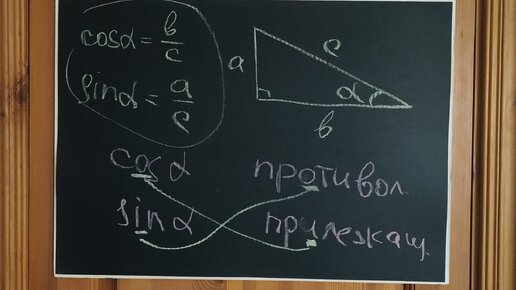 cosα = в/с
sinα = a/c
a
c
α
в
cos α противол.
sin α прилежащ.